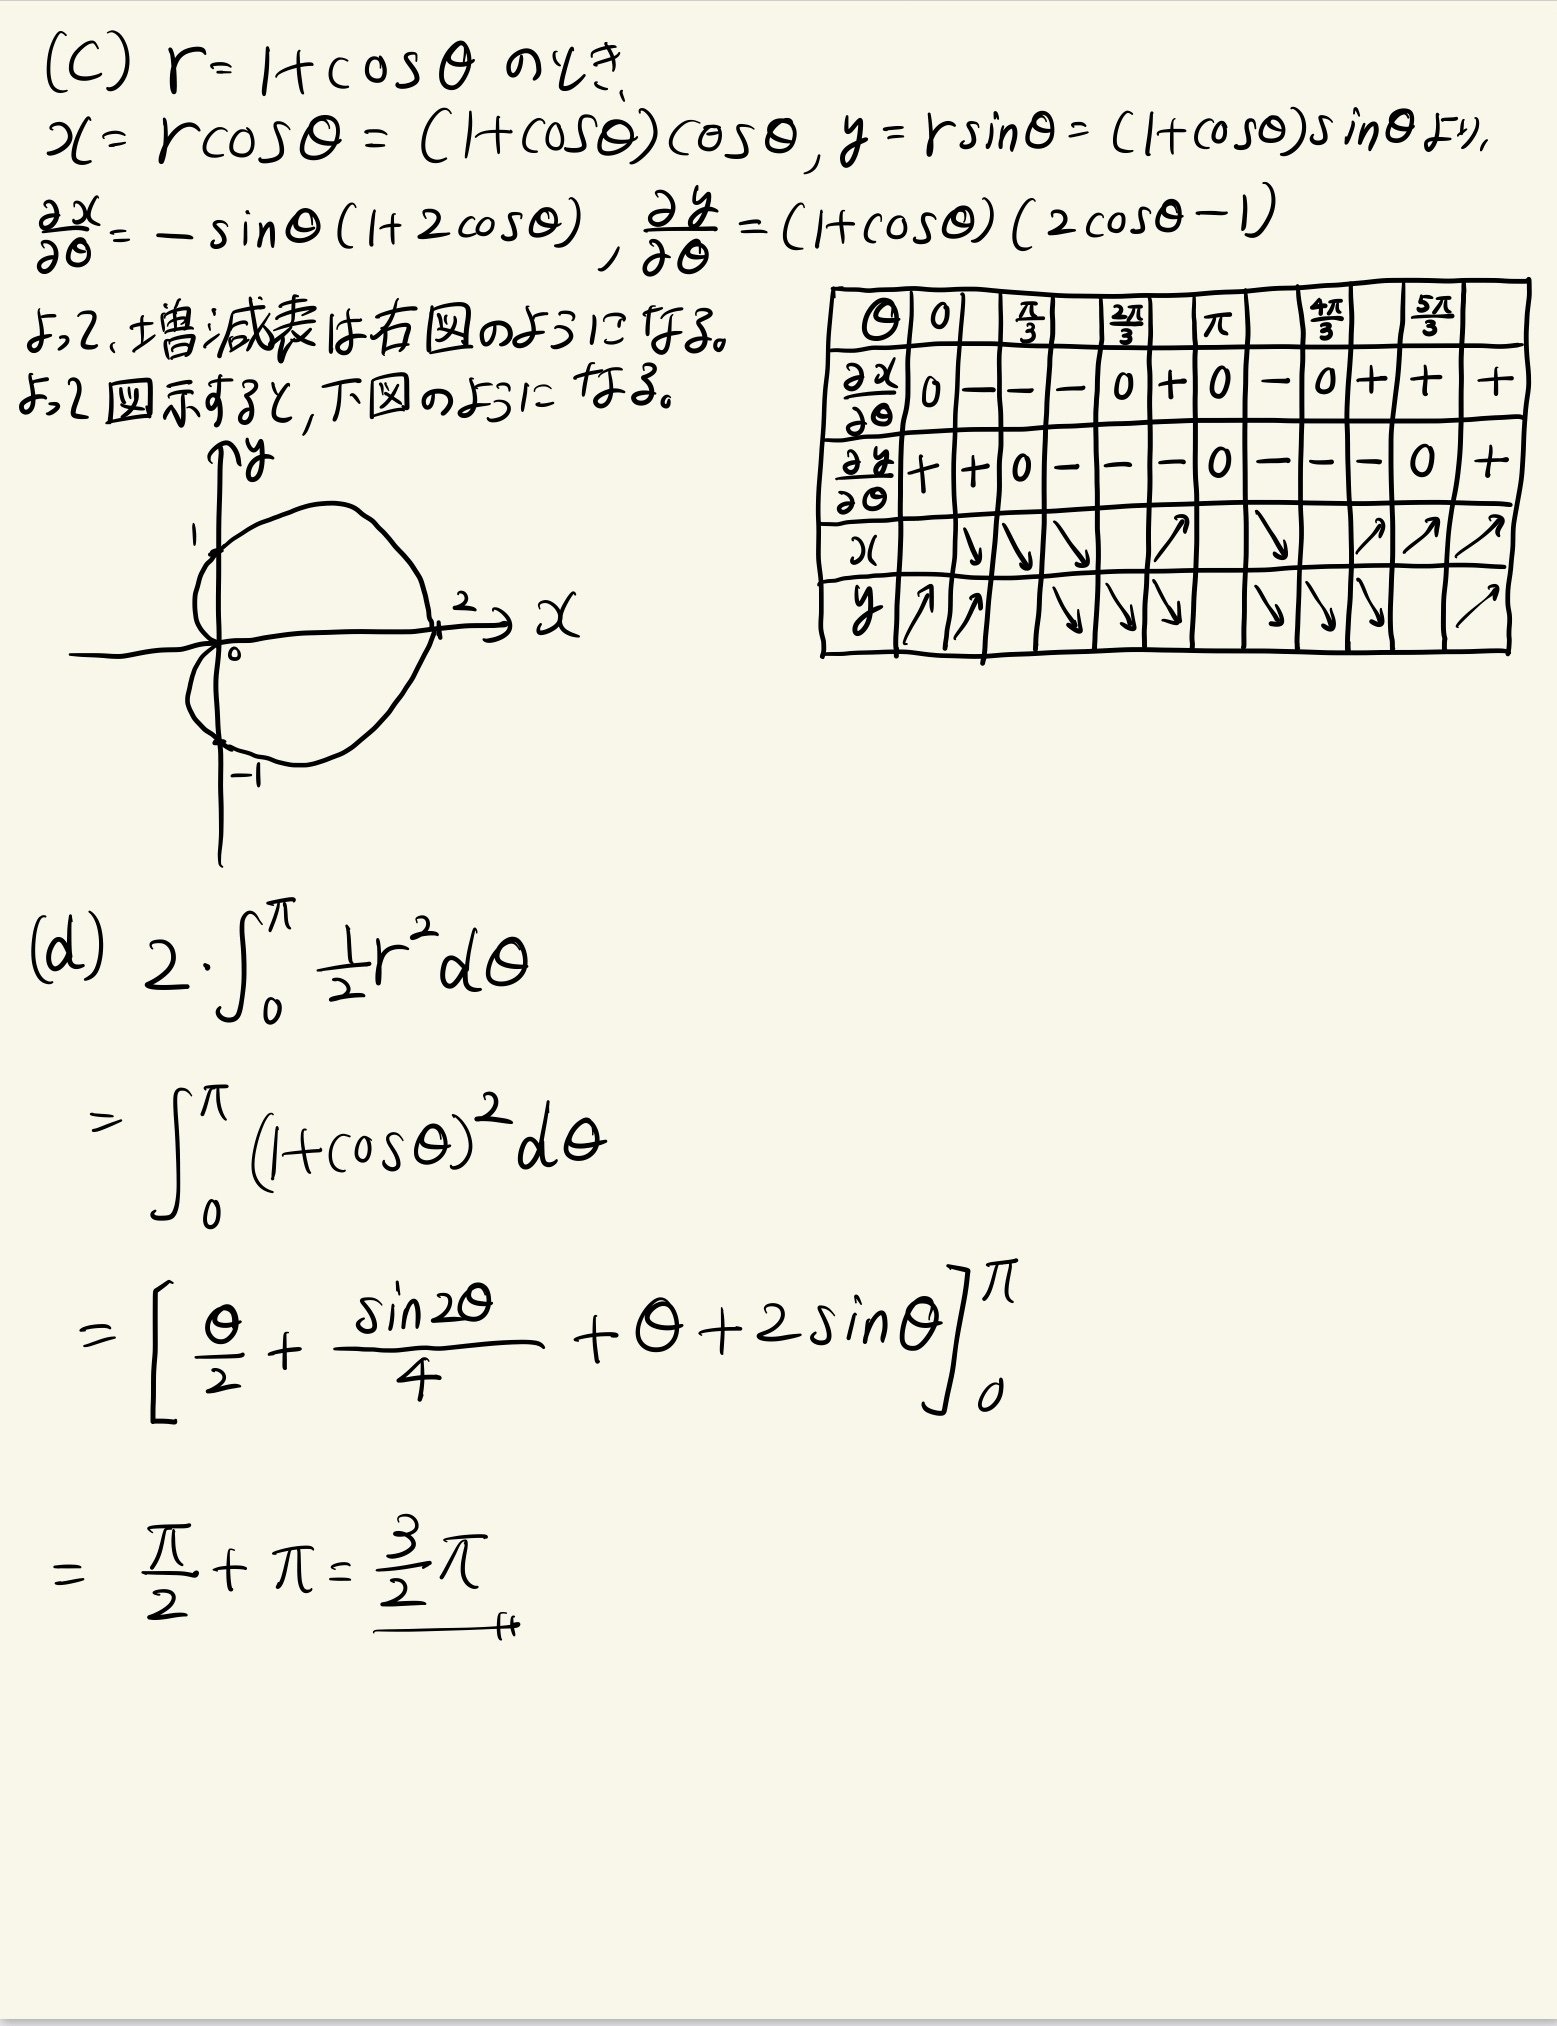 (C) r = 1+cosθ のとき、
x = rcosθ = (1+cosθ)cosθ, y = rsinθ = (1+cosθ)sinθ より、
∂x/∂θ = -sinθ(1+2cosθ), ∂y/∂θ = (1+cosθ)(2cosθ-1)
よって、増減表は右図のようになる。
よって図示すると, 下図のようになる。
θ 0 π/3 2π/3 π 4π/3 5π/3
∂x/∂θ 0 - - - 0 + 0 - 0 + + +
∂y/∂θ + + 0 - - - 0 - - - 0 +
x ↘ ↘ ↘ ↗ ↘ ↗ ↗ ↗
y ↗ ↗ ↘ ↘ ↘ ↘ ↘ ↘ ↗
y
1
2 x
0
-1
(d) 2·∫₀^π 1/2 r² dθ
= ∫₀^π (1+cosθ)² dθ
= [θ/2 + sin2θ/4 + θ + 2sinθ]₀^π
= π/2 + π = 3/2 π